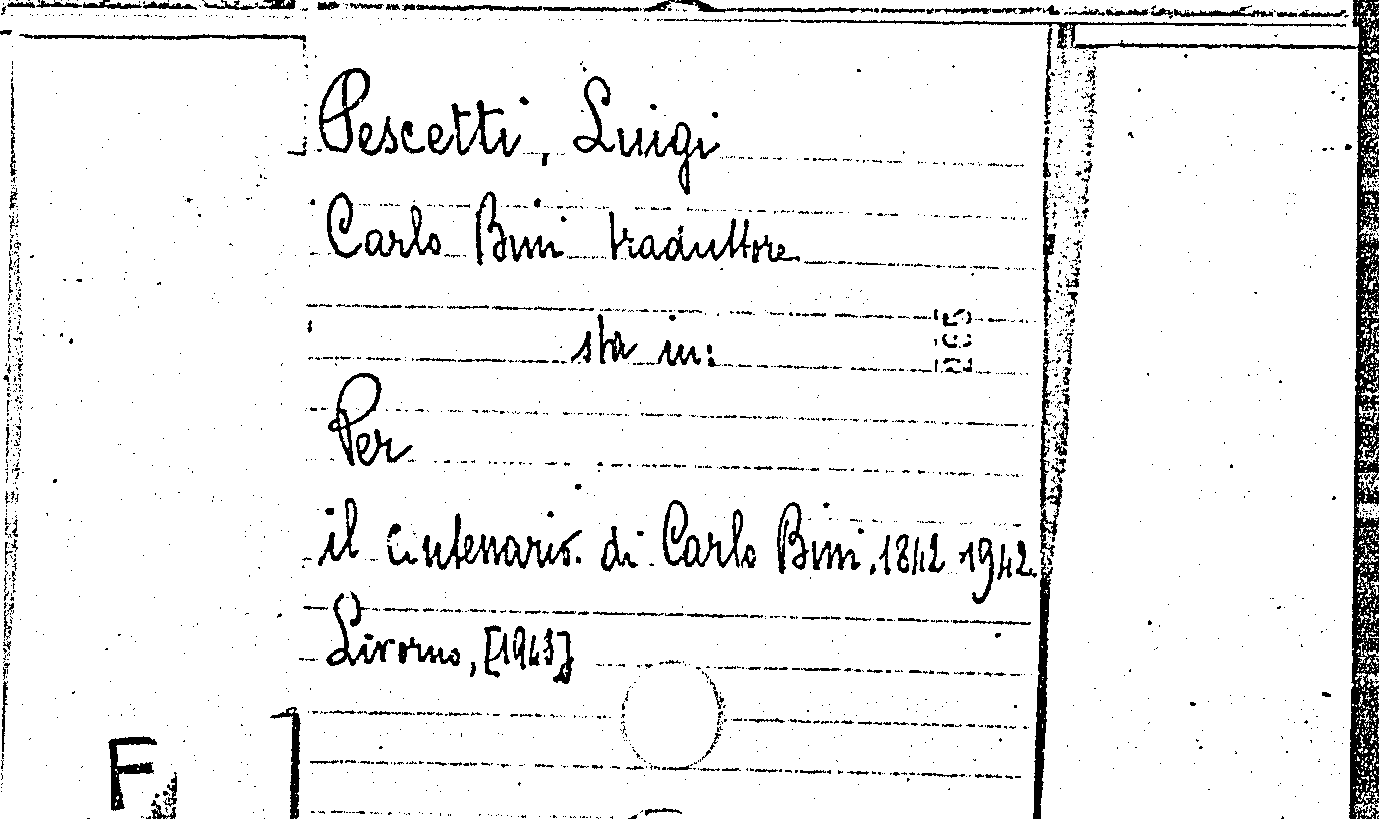 Pescetti, Luigi
Carlo Bini traduttore
sta in:
265
Per
il centenario di Carlo Bini. 1842-1942.
Livorno, [1943]
F